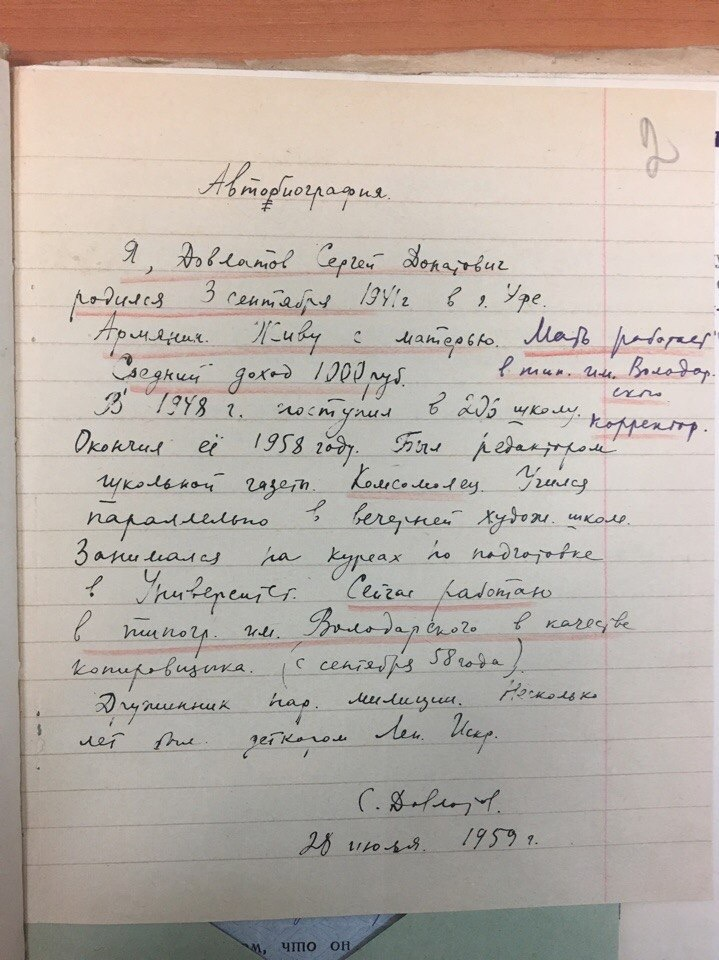 2
Автобиография.
Я, Довлатов Сергей Донатович
родился 3 сентября 1941г в г. Уфе.
Армянин. Живу с матерью. Мать работает
в тип. им. Володар.
ского
корректор.
Средний доход 1000 руб.
В 1948 г. поступил в 206 школу.
Окончил её 1958 году. Был редактором
школьной газеты. Комсомолец. Учился
параллельно в вечерней худож. школе.
Занимался на курсах по подготовке
в Университет. Сейчас работаю
в типогр. им. Володарского в качестве
копировщика. (с сентября 58 года).
Дружинник нар. милиции. Несколько
лет был деткором Лен. Искр.
С. Довлатов.
28 июля. 1959 г.
ом, что он